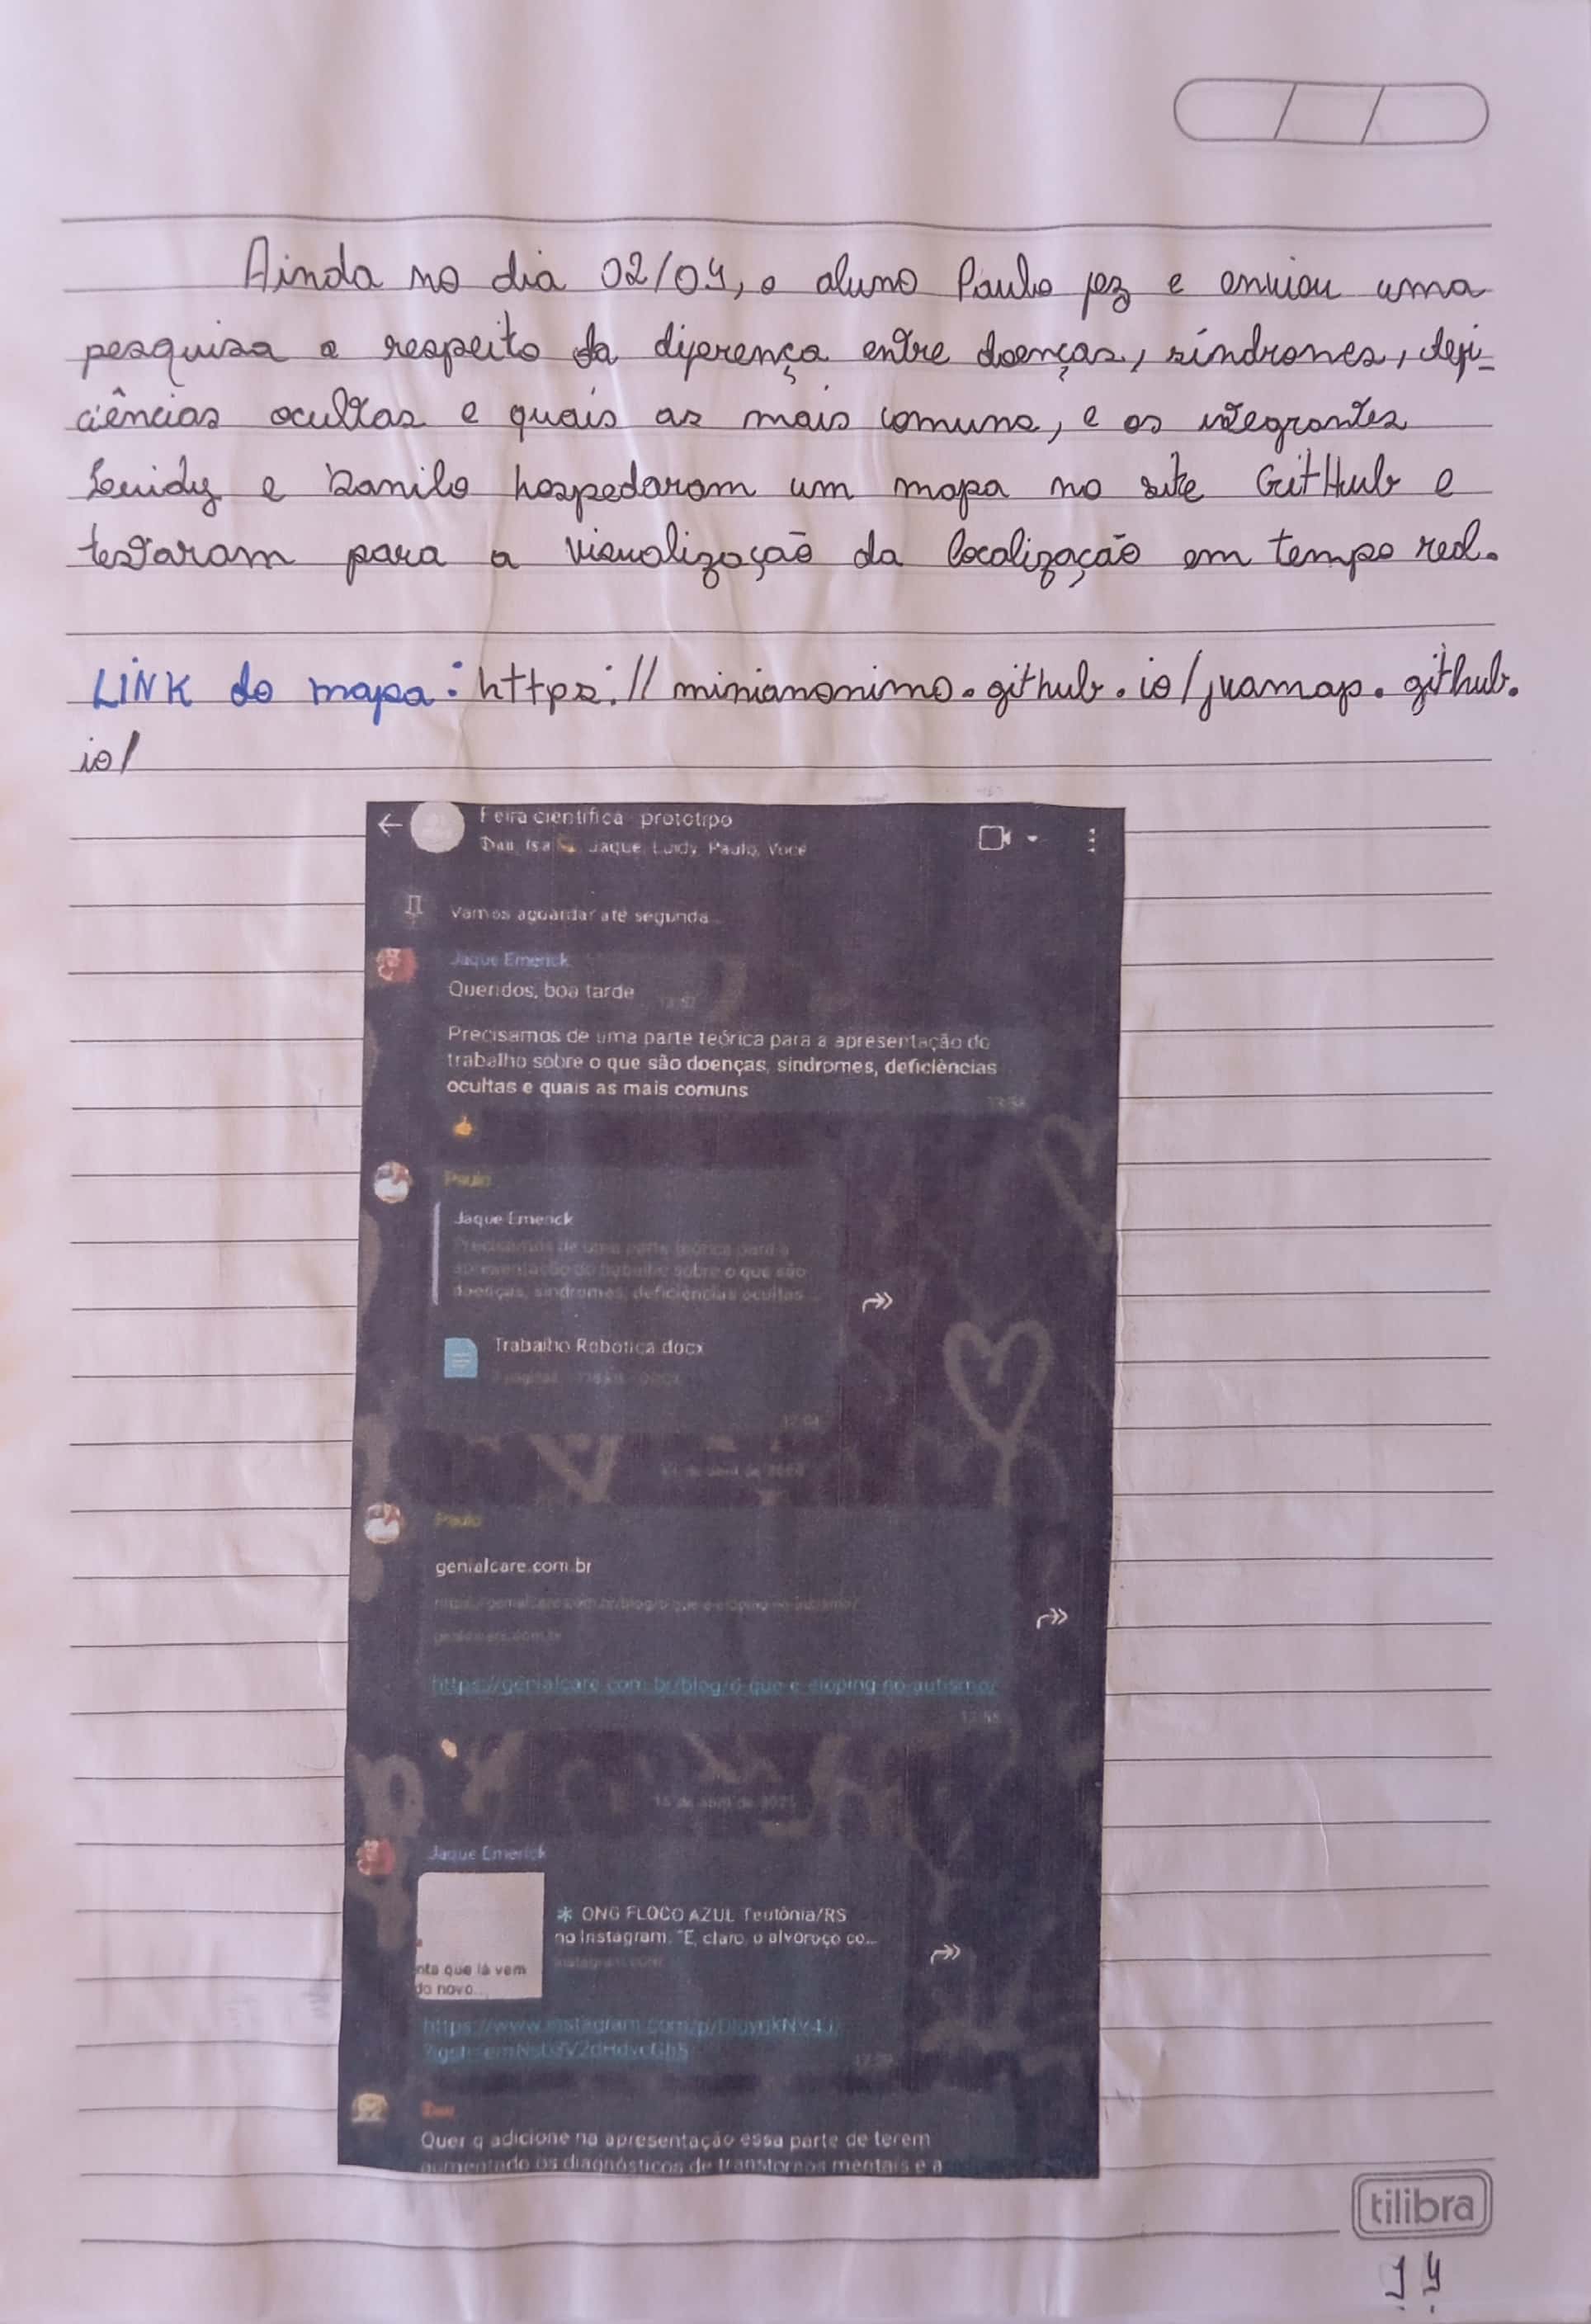 Ainda no dia 02/04, o aluno Paulo fez e enviou uma
pesquisa a respeito da diferença entre doenças, síndrones, defi-
ciências ocultas e quais as mais comuns, e os integrantes
Luidy e Danilo hospedaram um mapa no site GitHub e
testaram para a visualização da localização em tempo real.
LINK do mapa: https://minianonimo.github.io/juamap.github.
io/
Feira científica protótipo
Dan, Isa Jaque, Luidy, Paulo, Você
Vamos aguardar até segunda
Jaque Emerick
Queridos, boa tarde
Precisamos de uma parte teórica para a apresentação do
trabalho sobre o que são doenças, síndromes, deficiências
ocultas e quais as mais comuns
Paulo
Jaque Emerick
Precisamos de uma parte teórica para a
apresentação do trabalho sobre o que são
doenças, síndromes, deficiências ocultas...
Trabalho Robotica.docx
Paulo
genialcare.com.br
https://genialcare.com.br/blog/o-que-e-eloping-no-autismo/
genialcare.com.br
https://genialcare.com.br/blog/o-que-e-eloping-no-autismo/
Jaque Emerick
ONG FLOCO AZUL Teutônia/RS
no Instagram. "E, claro, o alvoroço co...
instagram.com
nta que lá vem
do novo...
Dan
Quer q adicione na apresentação essa parte de terem
aumentado os diagnósticos de transtornos mentais e a
tilibra
14